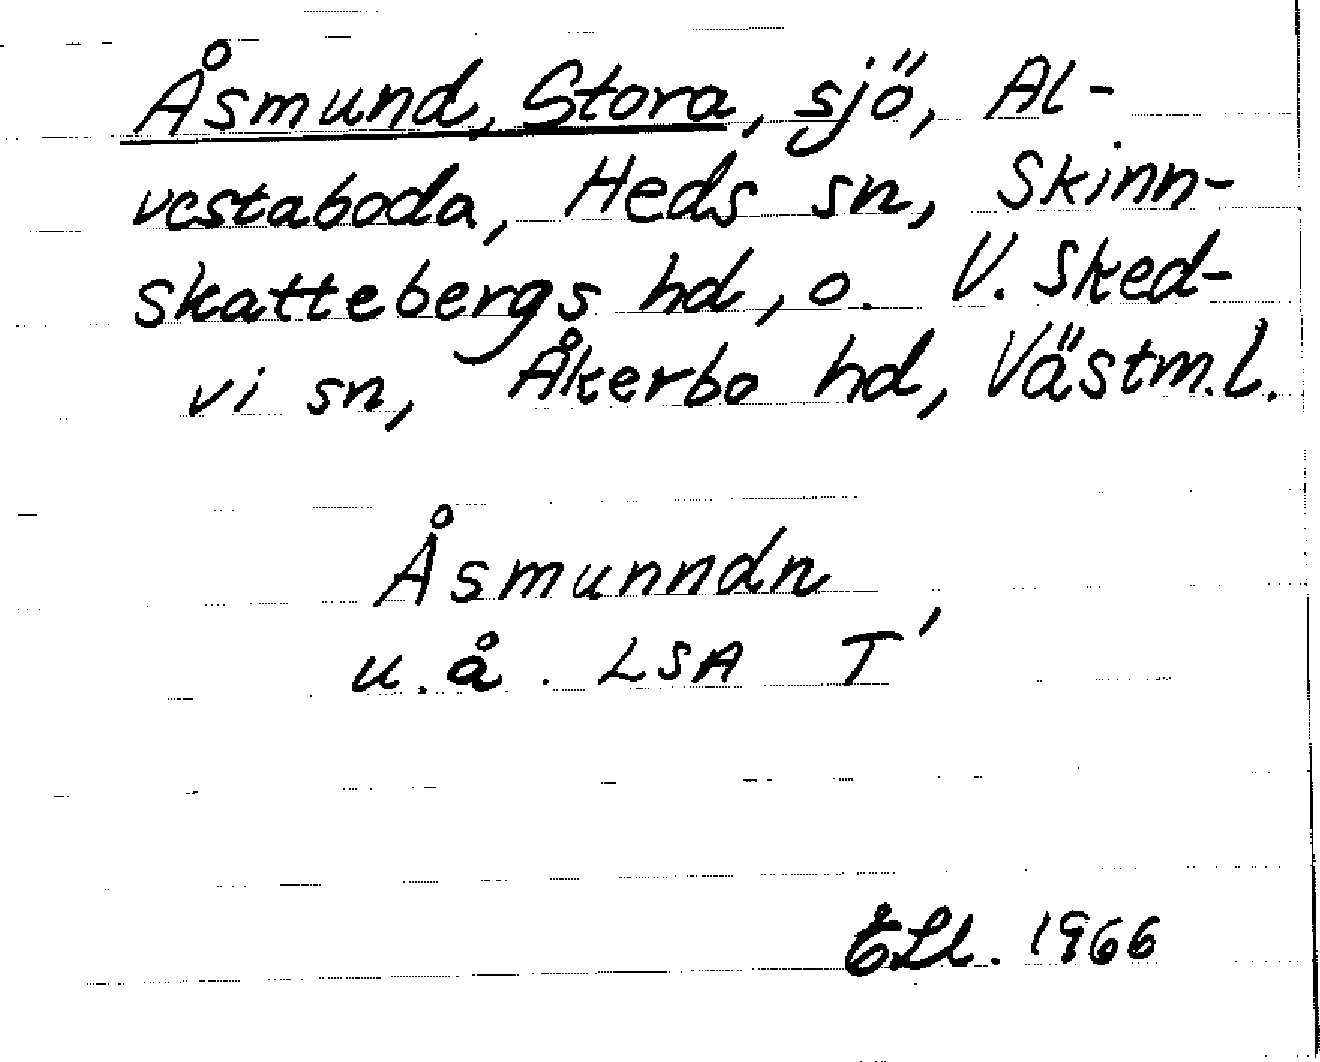 Åsmund, Stora, sjö, Al-
vestaboda, Heds sn, Skinn-
skattebergs hd, o. V. Sked-
vi sn, Åkerbo hd, Västm.l.
Åsmunndn,
u.å. LSA T
1966